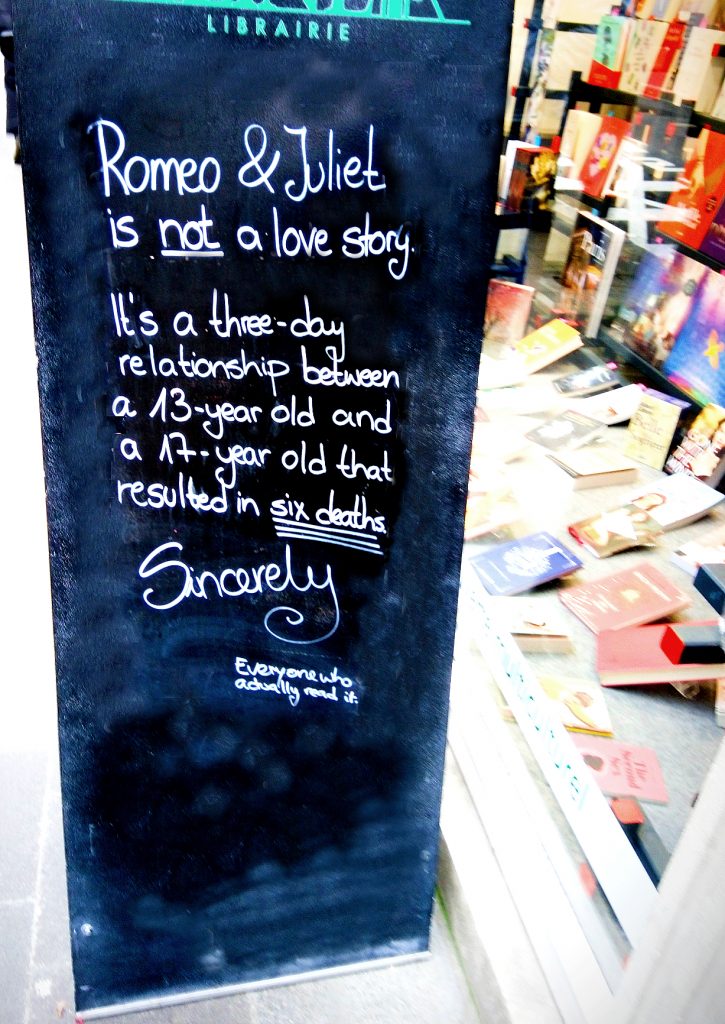 LIBRAIRIE
Romeo & Juliet
is not a love story.
It's a three-day
relationship between
a 13-year old and
a 17-year old that
resulted in six deaths.
Sincerely
Everyone who
actually read it.
The
Second
Sex